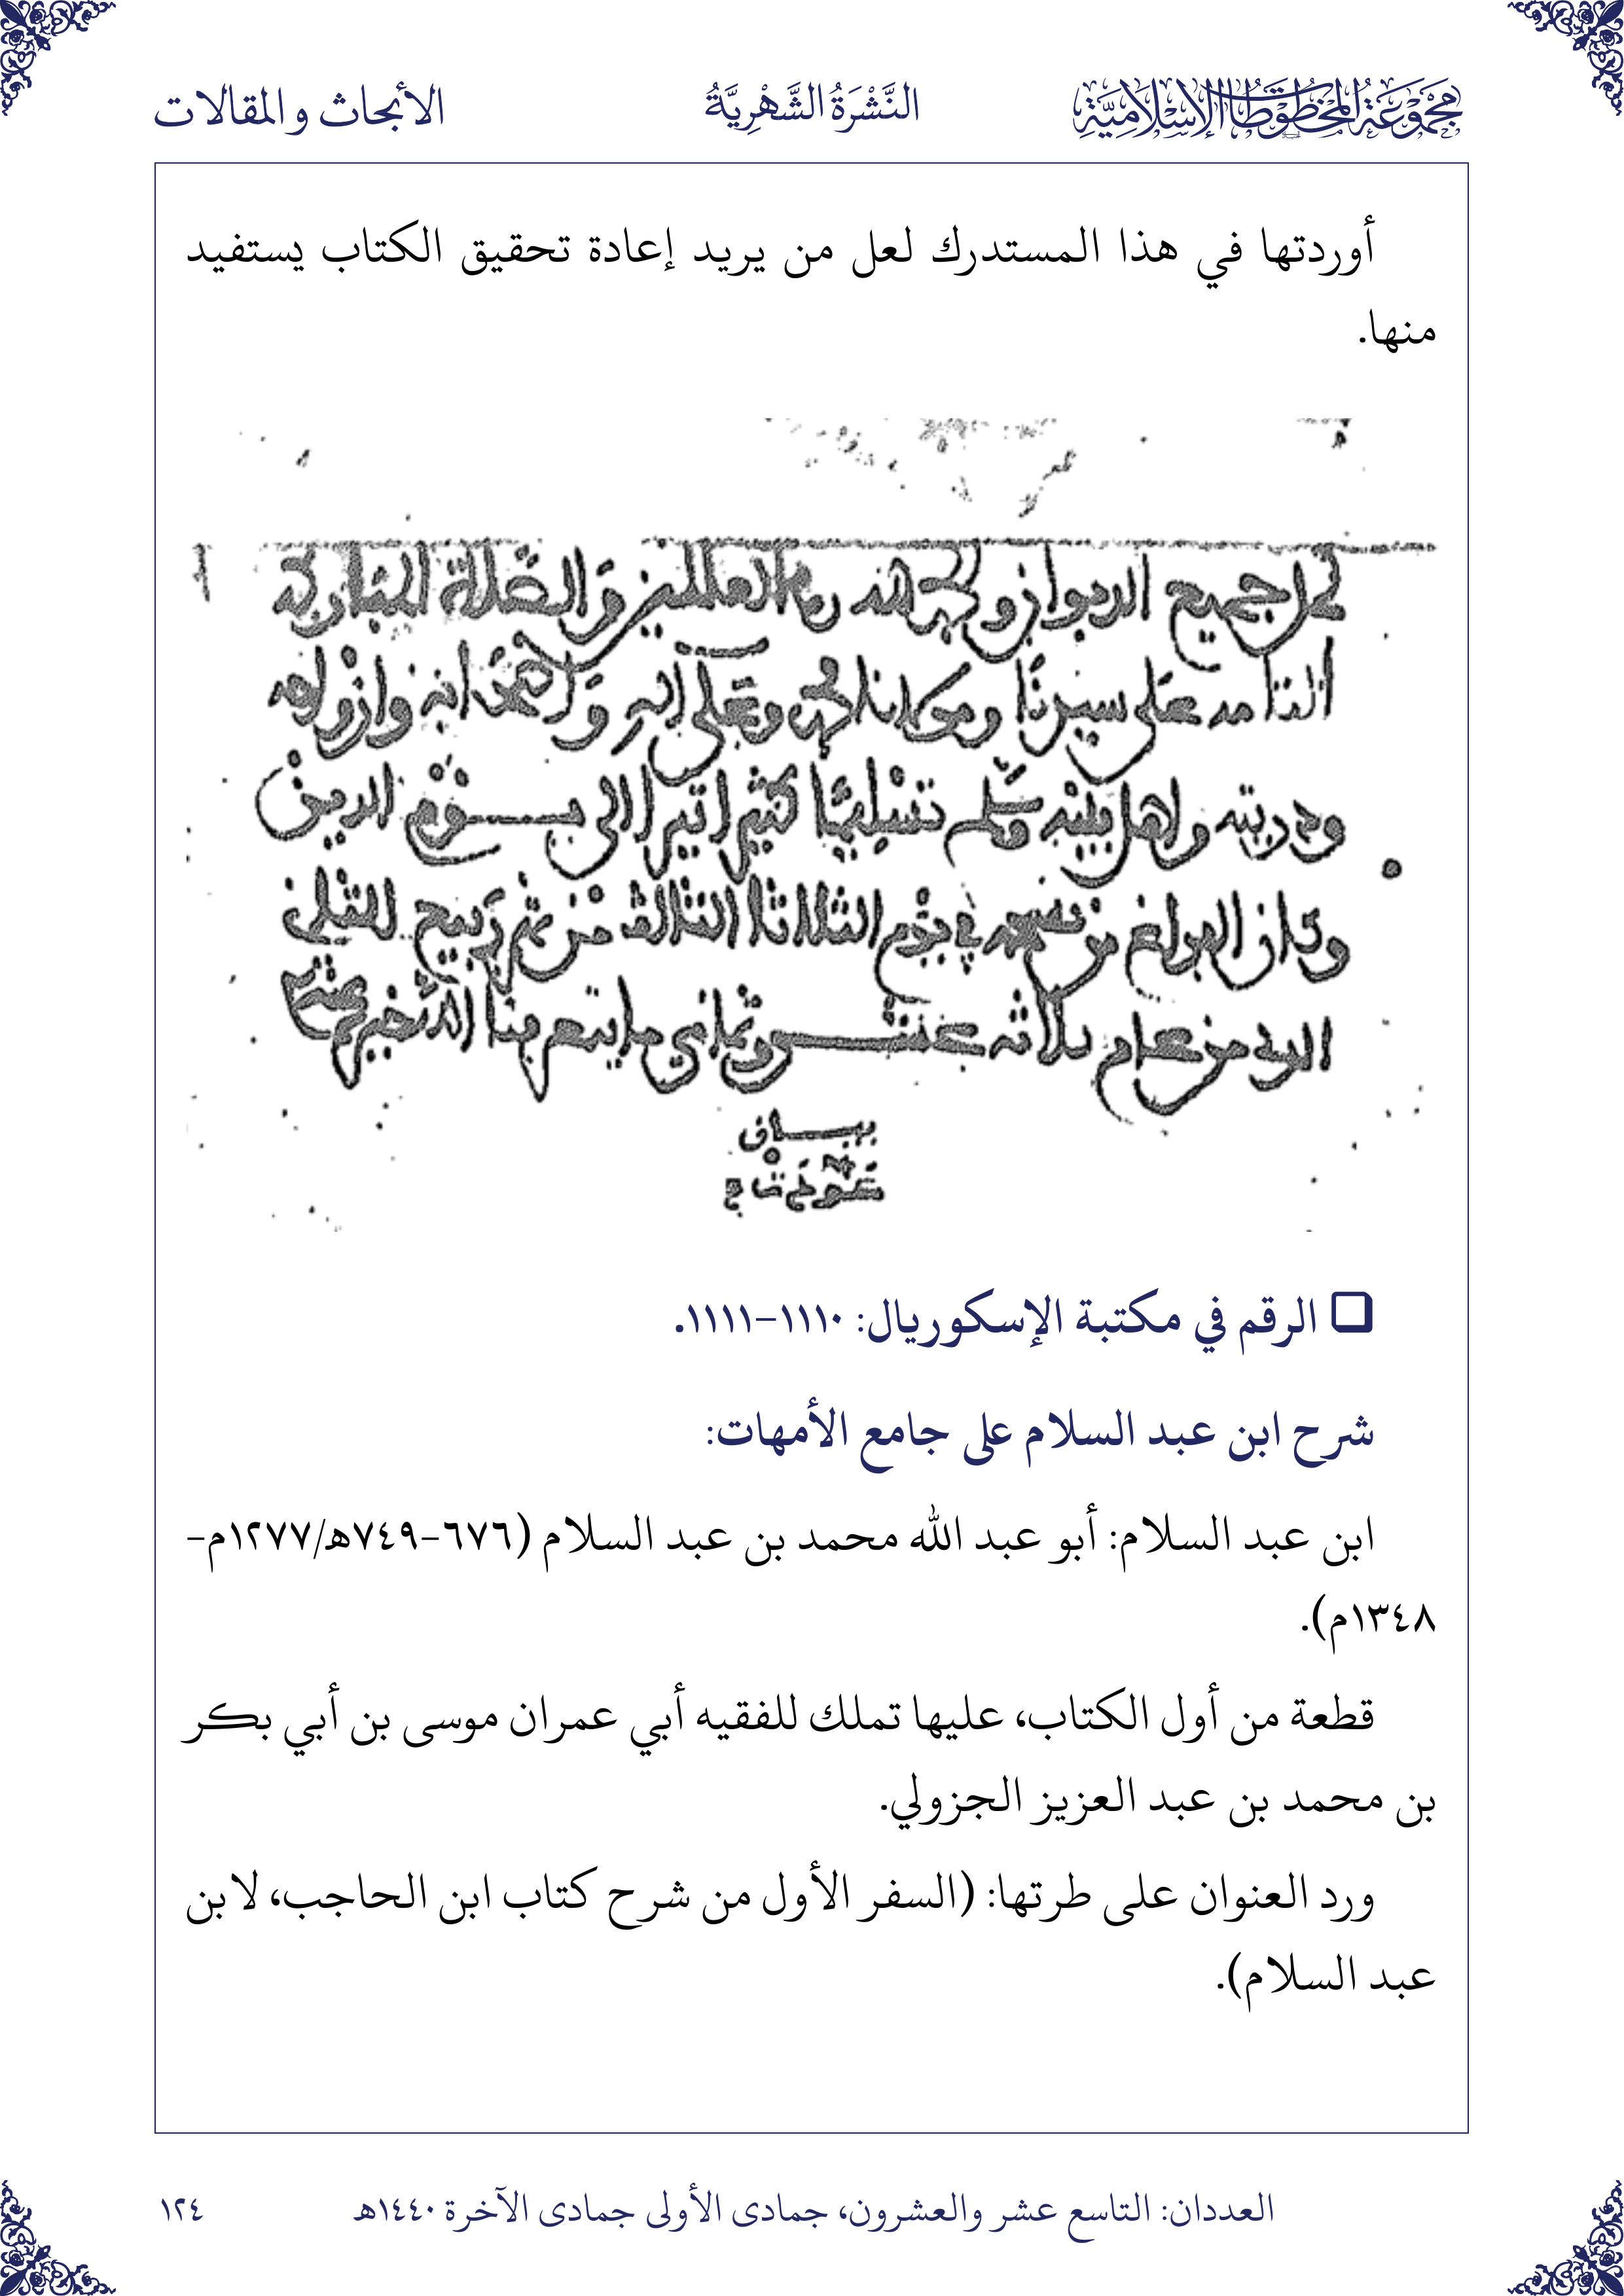 مجموعة المخطوطات الإسلامية
النَّشْرَةُ الشَّهْرِيَّةُ
الأبحاث والمقالات
أوردتها في هذا المستدرك لعل من يريد إعادة تحقيق الكتاب يستفيد
منها.
كمل جميع الديوان والحمد لله رب العالمين والصلاة المباركة
التامة على سيدنا ومولانا محمد وعلى آله وأصحابه وأزواجه
وذريته وأهل بيته وسلم تسليما كثيرا أثيرا إلى يوم الدين
وكان الفراغ من نسخه في يوم الثلاثاء الثالث من شهر ربيع الثاني
الذي من عام ثلاثة عشر وثماني مائة
❑ الرقم في مكتبة الإسكوريال: ١١١٠-١١١١.
شرح ابن عبد السلام على جامع الأمهات:
ابن عبد السلام: أبو عبد الله محمد بن عبد السلام (٦٧٦-٧٤٩هـ/١٢٧٧م-
١٣٤٨م).
قطعة من أول الكتاب، عليها تملك للفقيه أبي عمران موسى بن أبي بكر
بن محمد بن عبد العزيز الجزولي.
ورد العنوان على طرتها: (السفر الأول من شرح كتاب ابن الحاجب، لابن
عبد السلام).
العددان: التاسع عشر والعشرون، جمادى الأولى جمادى الآخرة ١٤٤٠هـ
١٢٤